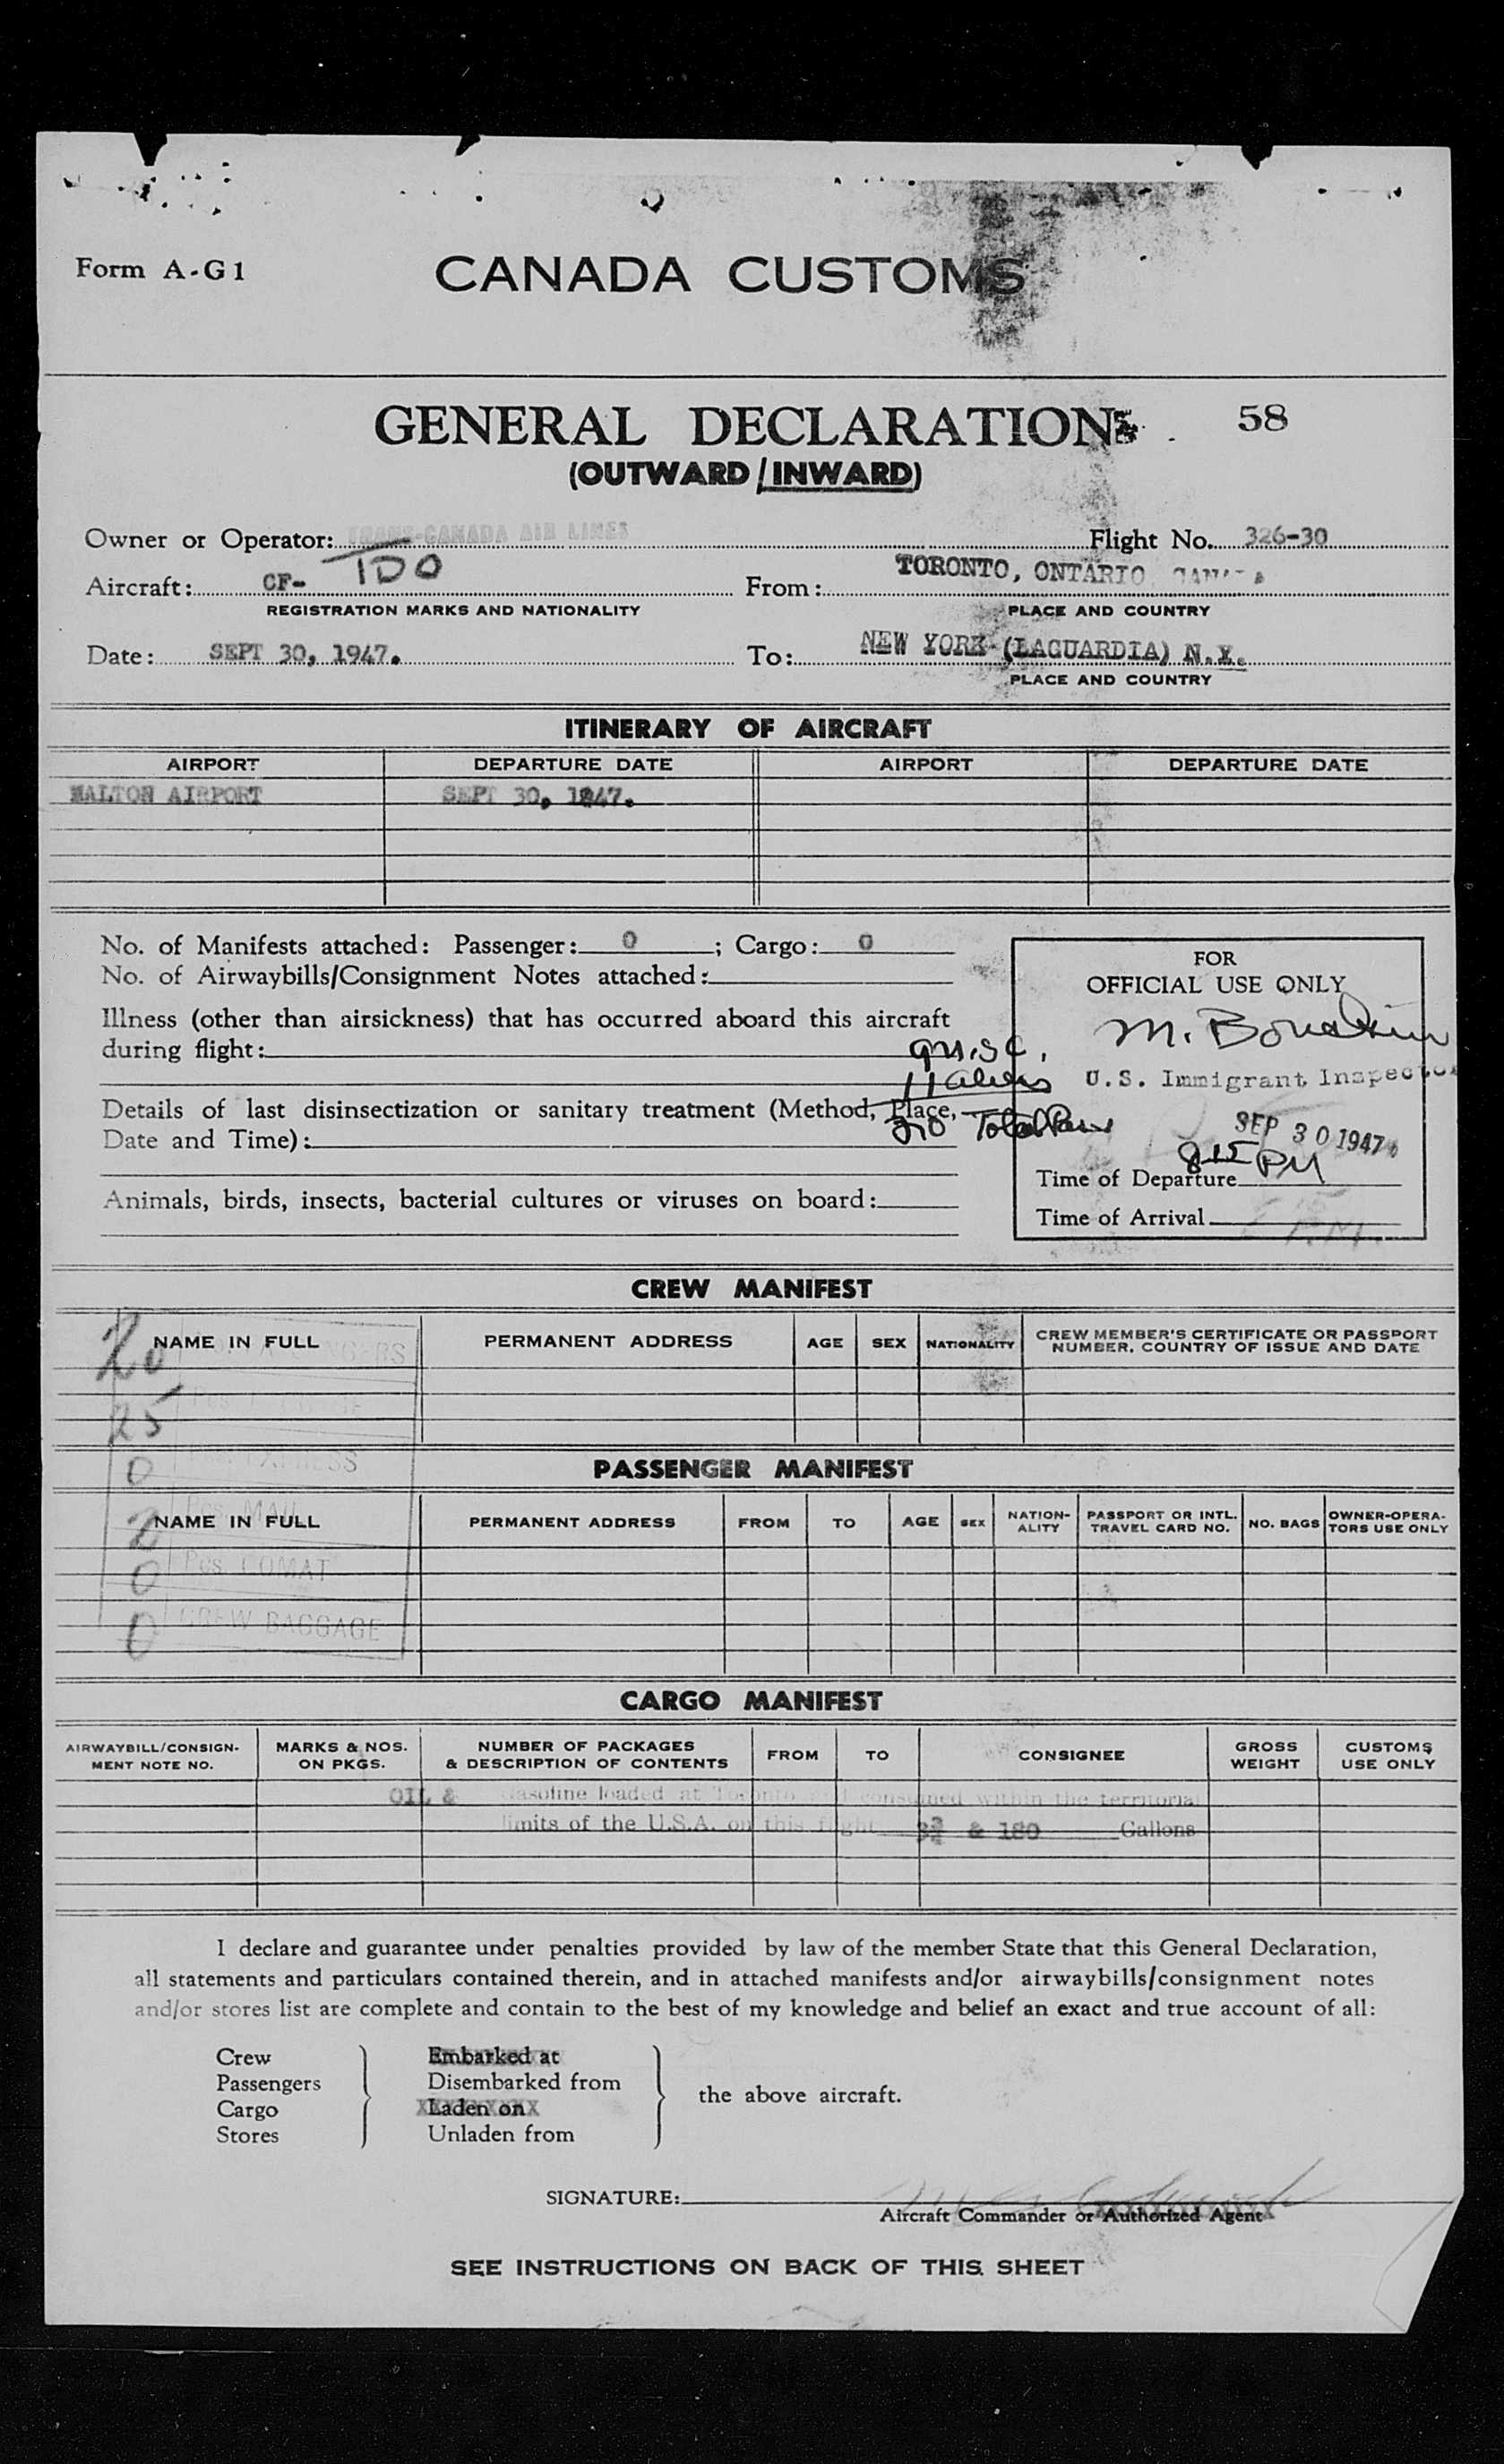 Form A-G1
CANADA CUSTOMS
GENERAL DECLARATION
58
(OUTWARD/INWARD)
Owner or Operator: TRANS-CANADA AIR LINES Flight No. 326-30
Aircraft: CF- TDO From: TORONTO, ONTARIO, CANADA
REGISTRATION MARKS AND NATIONALITY PLACE AND COUNTRY
Date: SEPT 30, 1947. To: NEW YORK (LAGUARDIA) N.Y.
PLACE AND COUNTRY
ITINERARY OF AIRCRAFT
AIRPORT DEPARTURE DATE AIRPORT DEPARTURE DATE
MALTON AIRPORT SEPT 30, 1947.
No. of Manifests attached: Passenger: 0 ; Cargo: 0
No. of Airwaybills/Consignment Notes attached:
Illness (other than airsickness) that has occurred aboard this aircraft
during flight:
Details of last disinsectization or sanitary treatment (Method, Place,
Date and Time):
Animals, birds, insects, bacterial cultures or viruses on board:
9 U.S.C.
11 aliens
20 Total Pass
FOR
OFFICIAL USE ONLY
U.S. Immigrant Inspector
SEP 30 1947
Time of Departure 8 15 PM
Time of Arrival P.M.
CREW MANIFEST
NAME IN FULL PERMANENT ADDRESS AGE SEX NATIONALITY CREW MEMBER'S CERTIFICATE OR PASSPORT
NUMBER, COUNTRY OF ISSUE AND DATE
20
25
0 EXPRESS
PASSENGER MANIFEST
2 Pcs. MAIL
NAME IN FULL PERMANENT ADDRESS FROM TO AGE SEX NATION-
ALITY PASSPORT OR INTL.
TRAVEL CARD NO. NO. BAGS OWNER-OPERA-
TORS USE ONLY
0 Pcs. COMAT
0 CREW BAGGAGE
CARGO MANIFEST
AIRWAYBILL/CONSIGN-
MENT NOTE NO. MARKS & NOS.
ON PKGS. NUMBER OF PACKAGES
& DESCRIPTION OF CONTENTS FROM TO CONSIGNEE GROSS
WEIGHT CUSTOMS
USE ONLY
OIL & Gasoline loaded at Toronto and consumed within the territorial
limits of the U.S.A. on this flight 3¾ & 180 Gallons
I declare and guarantee under penalties provided by law of the member State that this General Declaration,
all statements and particulars contained therein, and in attached manifests and/or airwaybills/consignment notes
and/or stores list are complete and contain to the best of my knowledge and belief an exact and true account of all:
Crew Embarked at
Passengers Disembarked from
the above aircraft.
Cargo Laden on
Stores Unladen from
SIGNATURE:
Aircraft Commander or Authorized Agent
SEE INSTRUCTIONS ON BACK OF THIS SHEET